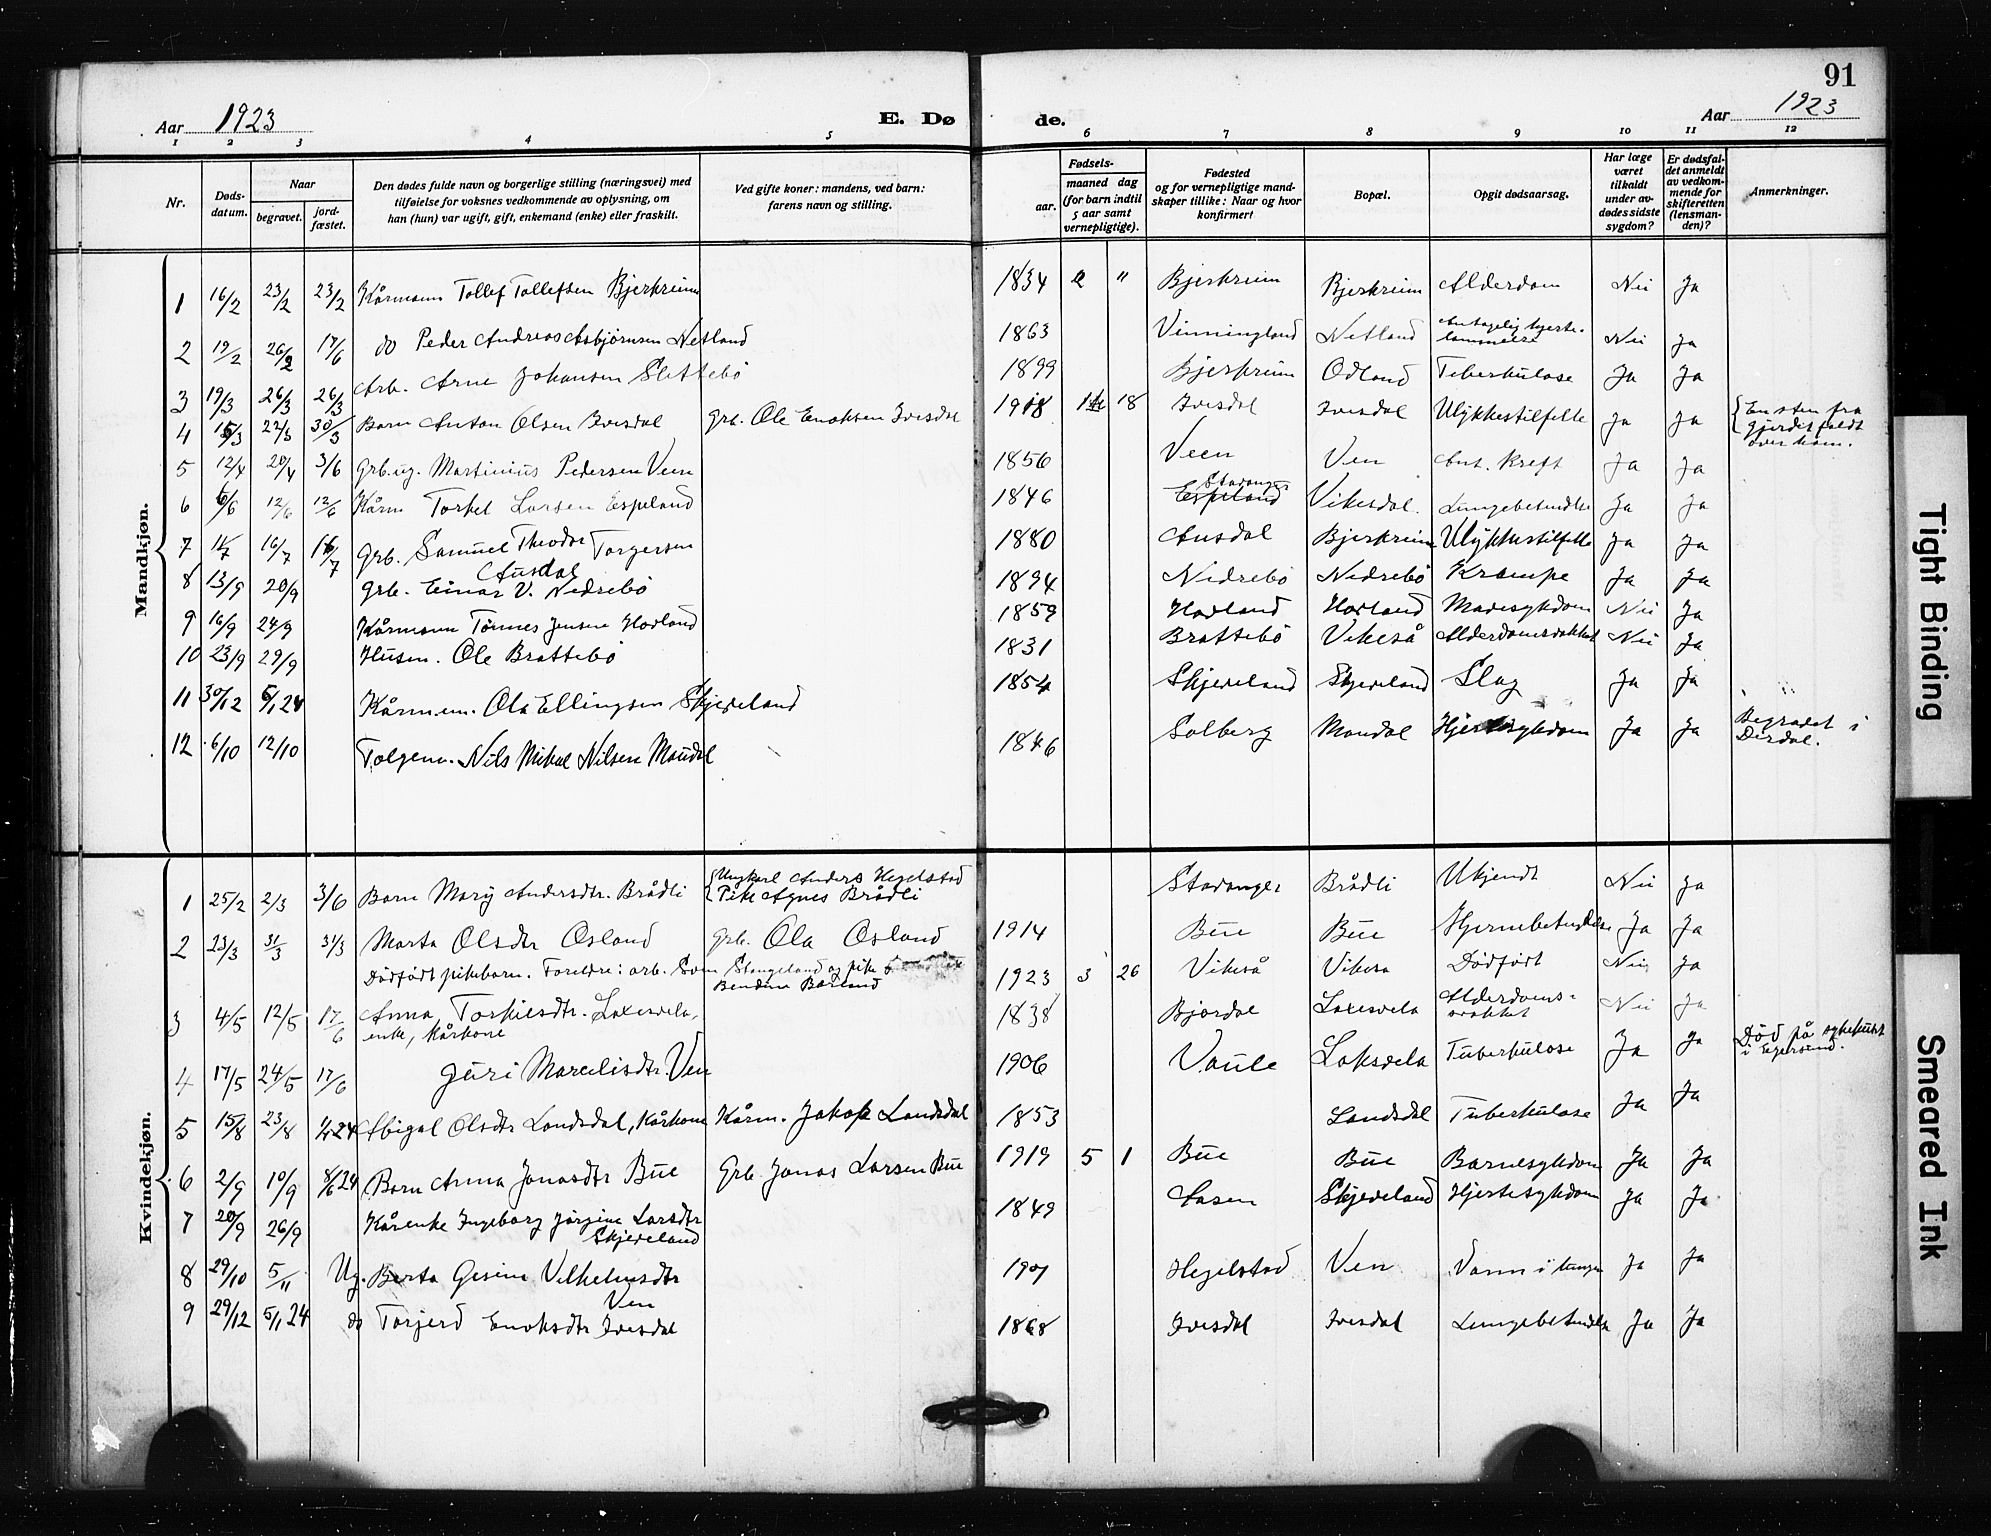 91
Aar 1923
E. Dø
de.
Aar 1923
1 2 3 4 5 6 7 8 9 10 11 12
Nr.
Døds-
datum.
Naar
begravet.
jord-
fæstet.
Den dødes fulde navn og borgerlige stilling (næringsvei) med
tilføielse for voksnes vedkommende av oplysning, om
han (hun) var ugift, gift, enkemand (enke) eller fraskilt.
Ved gifte koner: mandens, ved barn:
farens navn og stilling.
Fødsels-
aar.
maaned dag
(for barn indtil
5 aar samt
vernepligtige).
Fødested
og for vernepligtige mand-
skaper tillike: Naar og hvor
konfirmert
Bopæl.
Opgit dødsaarsag.
Har læge
været
tilkaldt
under av-
dødes sidste
sygdom?
Er dødsfal-
det anmeldt
av vedkom-
mende for
skifteretten
(lensman-
den)?
Anmerkninger.
Mandkjøn.
1 16/2 23/2 23/2 Kårmann Tollef Tollefsen Bjerkreim 1834 2 " Bjerkreim Bjerkreim Alderdom Nei Ja
2 19/2 26/2 17/6 do Peder Andreas Asbjørnsen Netland 1863 Vinningland Netland Antagelig hjerte-
lammelse Nei Ja
3 19/3 26/3 26/3 Arb. Arne Johansen Slettebö 1899 Bjerkreim Odland Tuberkulose Ja Ja
4 15/3 22/3 30/3 Barn Anton Olsen Ivesdal Grb. Ole Enoksen Ivesdal 1918 18 Ivesdal Ivesdal Ulykkestilfelle Ja Ja En sten fra
gjerdet faldt
over ham.
5 12/4 20/4 3/6 Grb. ug. Martinius Pedersen Veen 1856 Veen Ven Ant. Kreft Ja Ja
6 6/6 12/6 12/6 Kårm Torkel Larsen Espeland 1846 Stavanger
Espeland Vikesdal. Lungebetendelse Ja Ja
7 11/7 16/7 16/7 Grb. Samuel Theodor Torgersen
Ausdal 1880 Ausdal Bjerkreim Ulykkestilfelle Ja Ja
8 13/9 20/9 Grb. Einar V. Nedrebö 1894 Nedrebö Nedrebö Krampe Ja Ja
9 16/9 24/9 Kårmann Tönnes Jensen Hovland 1859 Hovland Hovland Mavesykdom Nei Ja
10 23/9 29/9 Husm. Ole Brattebö 1831 Brattebö Vikeså Alderdomssvakhet Nei Ja
11 30/12 5/1 24 Kårmann. Ola Ellingsen Skjeveland 1854 Skjeveland Skjeveland Slag Ja Ja
12 6/10 12/10 Folgem. Nils Mikal Nilsen Maudal 1846 Solberg Maudal Hjertesykdom Ja Ja Begravet i
Dirdal.
Kvindekjøn.
1 25/2 2/3 3/6 Barn Mary Andersdtr. Brådli Ungkarl Anders Hegelstad
Pike Agnes Brådli Stavanger Brådli Ukjendt Nei Ja
2 23/3 31/3 31/3 Marta Olsdtr Osland Grb. Ola Osland 1914 Bue Bue Hjernebetendelse Ja Ja
Dödfödt pikebarn. Foreldre: arb. Sven Stangeland og pike
Bendine 1923 3 26 Vikeså Vikesa Dödfödt Nei Ja
3 4/5 12/5 17/6 Anna Torkelsdtr. Laxesvela,
enke, kårkone 1838 Bjordal Laxesvela Alderdoms-
svakhet Nei Ja
4 17/5 24/5 17/6 Guri Marselisdtr. Ven 1906 Vaule Laksvela Tuberkulose Ja Ja Död på sykehuset
i Egersund.
5 15/8 23/8 24 Abigal Olsdtr Landsdal, Kårkone Kårm. Jakob Landsdal 1853 Landsdal Tuberkulose Ja Ja
6 2/9 10/9 8/6 24 Barn Anna Jonasdtr Bue Grb. Jonas Larsen Bue 1919 5 1 Bue Bue Barnesykdom Ja Ja
7 20/9 26/9 Kårenke Ingeborg Jörgine Larsdtr
Skjeveland 1849 Lasen Skjeveland Hjertesykdom Ja Ja
8 29/10 5/11 Ug. Berta Gesine Vilhelmsdtr
Ven 1901 Hegelstad Ven Vann i lungen Ja Ja
9 29/12 5/1 24 do Torjerd Enoksdtr Ivesdal 1868 Ivesdal Ivesdal Lungebetendelse Ja Ja
Tight Binding
Smeared Ink